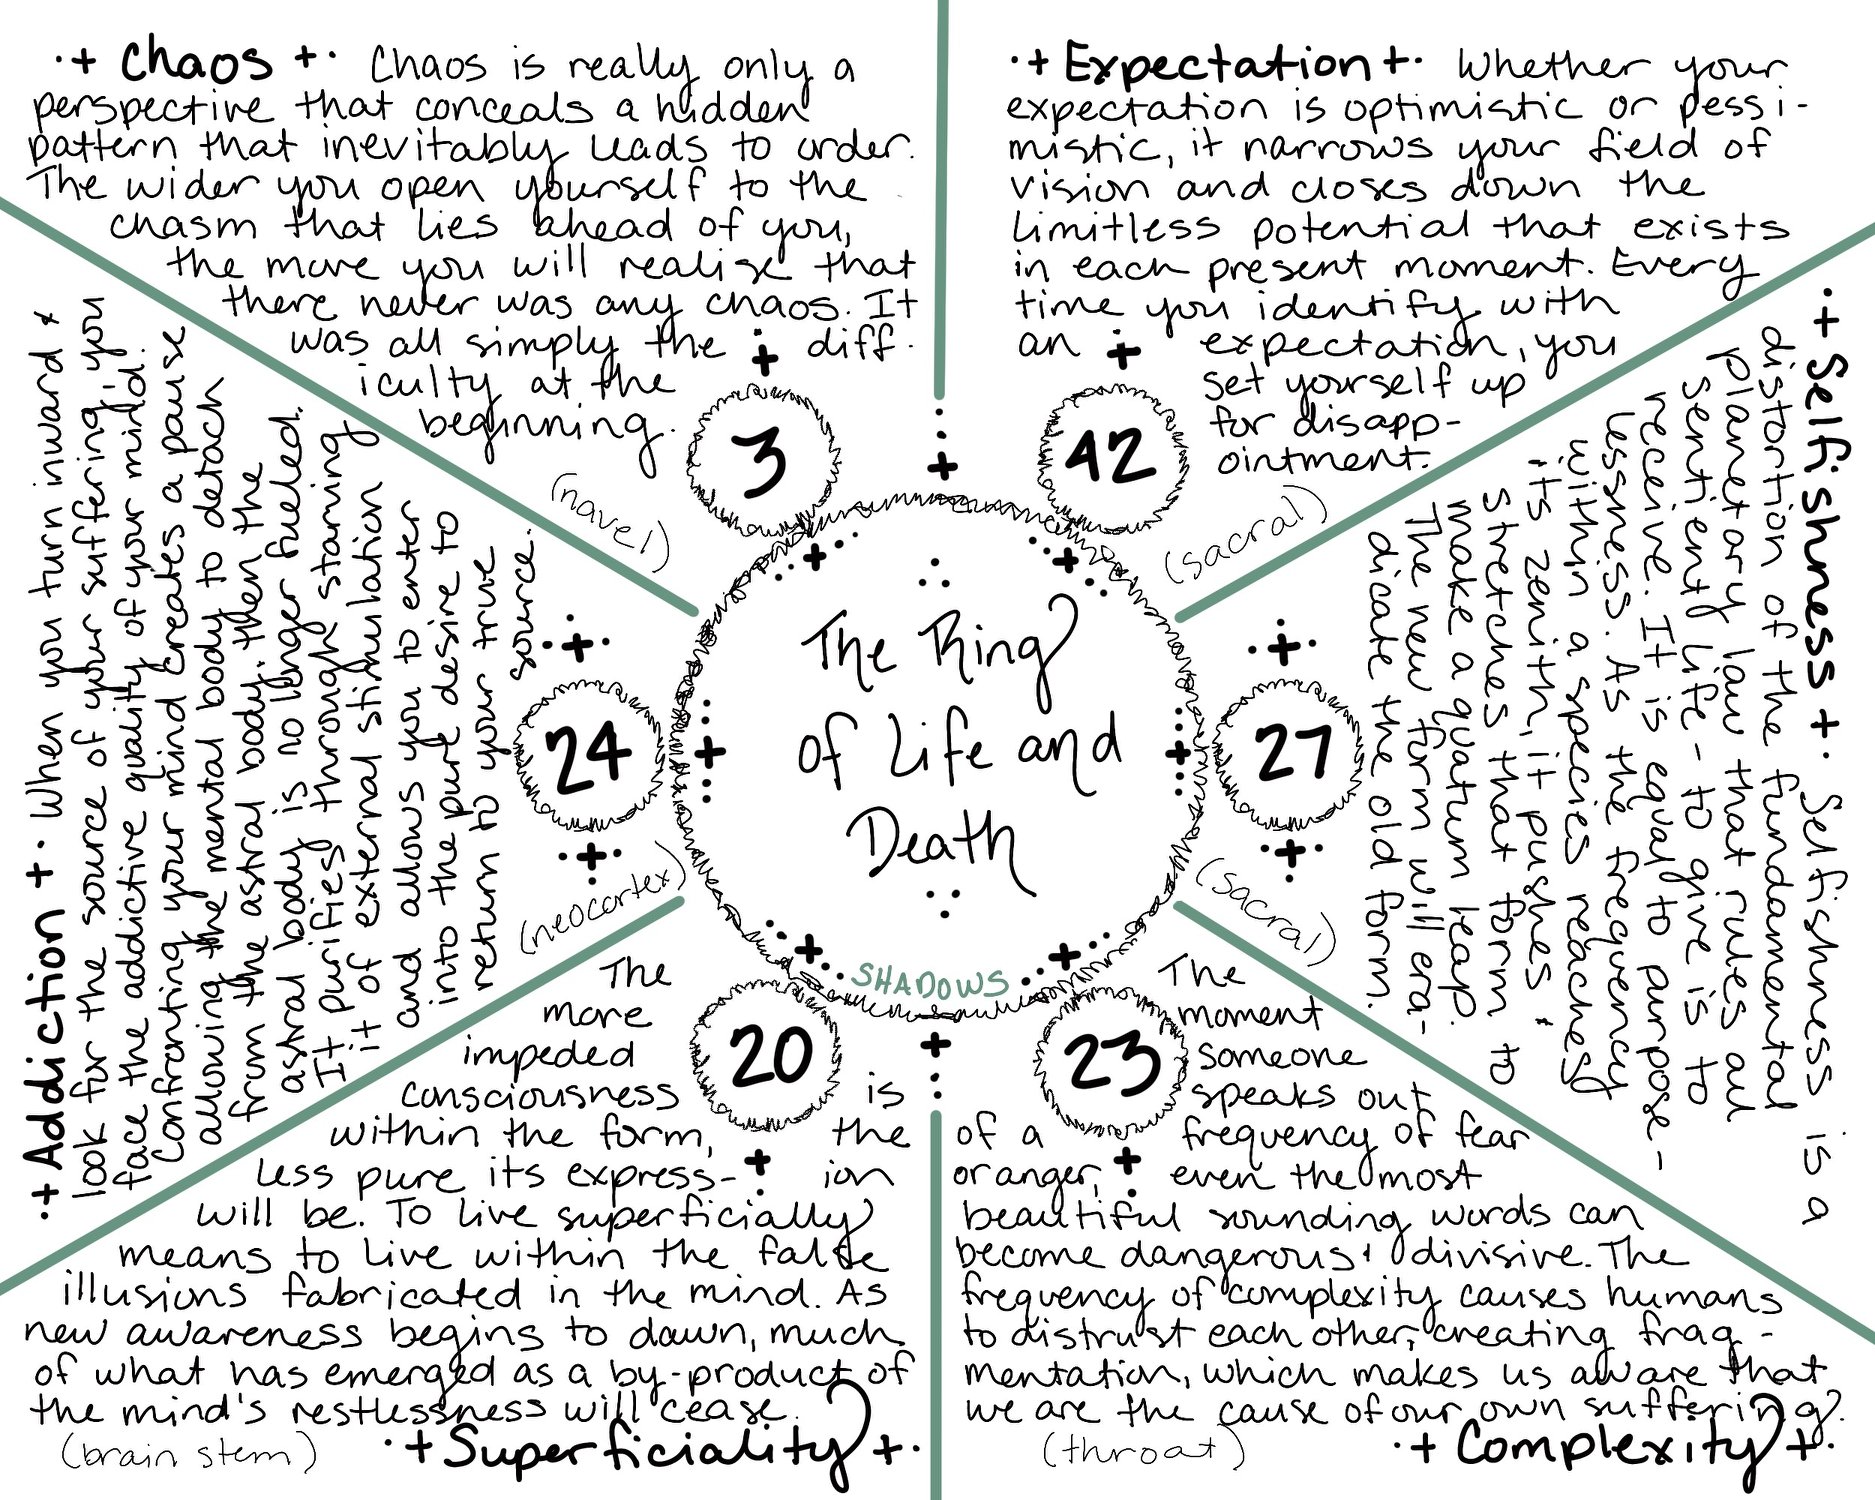 ·+ Chaos +· Chaos is really only a
perspective that conceals a hidden
pattern that inevitably leads to order.
The wider you open yourself to the
chasm that lies ahead of you,
the more you will realise that
there never was any chaos. It
was all simply the diff-
iculty at the
beginning.
3
(navel)
·+ Expectation +· Whether your
expectation is optimistic or pessi-
mistic, it narrows your field of
vision and closes down the
limitless potential that exists
in each present moment. Every
time you identify with
an expectation, you
set yourself up
for disapp-
ointment.
42
(sacral)
·+ Selfishness +· Selfishness is a
distortion of the fundamental
planetary law that rules all
sentient life - to give is to
receive. It is equal to purpose-
lessness. As the frequency
within a species reaches
its zenith, it pushes &
stretches that form to
make a quatum leap.
The new form will era-
dicate the old form.
27
(sacral)
The
moment
someone
speaks out
of a frequency of fear
or anger, even the most
beautiful sounding words can
become dangerous & divisive. The
frequency of complexity causes humans
to distrust each other, creating frag-
mentation, which makes us aware that
we are the cause of our own suffering.
(throat) ·+ Complexity +·
23
The
more
impeded
consciousness is
within the form, the
less pure its express-
ion
will be. To live superficially
means to live within the false
illusions fabricated in the mind. As
new awareness begins to dawn, much
of what has emerged as a by-product of
the mind's restlessness will cease.
(brain stem) ·+ Superficiality +·
20
·+ Addiction +· When you turn inward &
look for the source of your suffering, you
face the addictive quality of your mind.
Confronting your mind creates a pause
allowing the mental body to detach
from the astral body. then the
astral body is no longer fueled.
It purifies through starving
it of external stimulation
and allows you to enter
into the pure desire to
return to your true
source.
24
(neocortex)
The Ring
of Life and
Death
SHADOWS